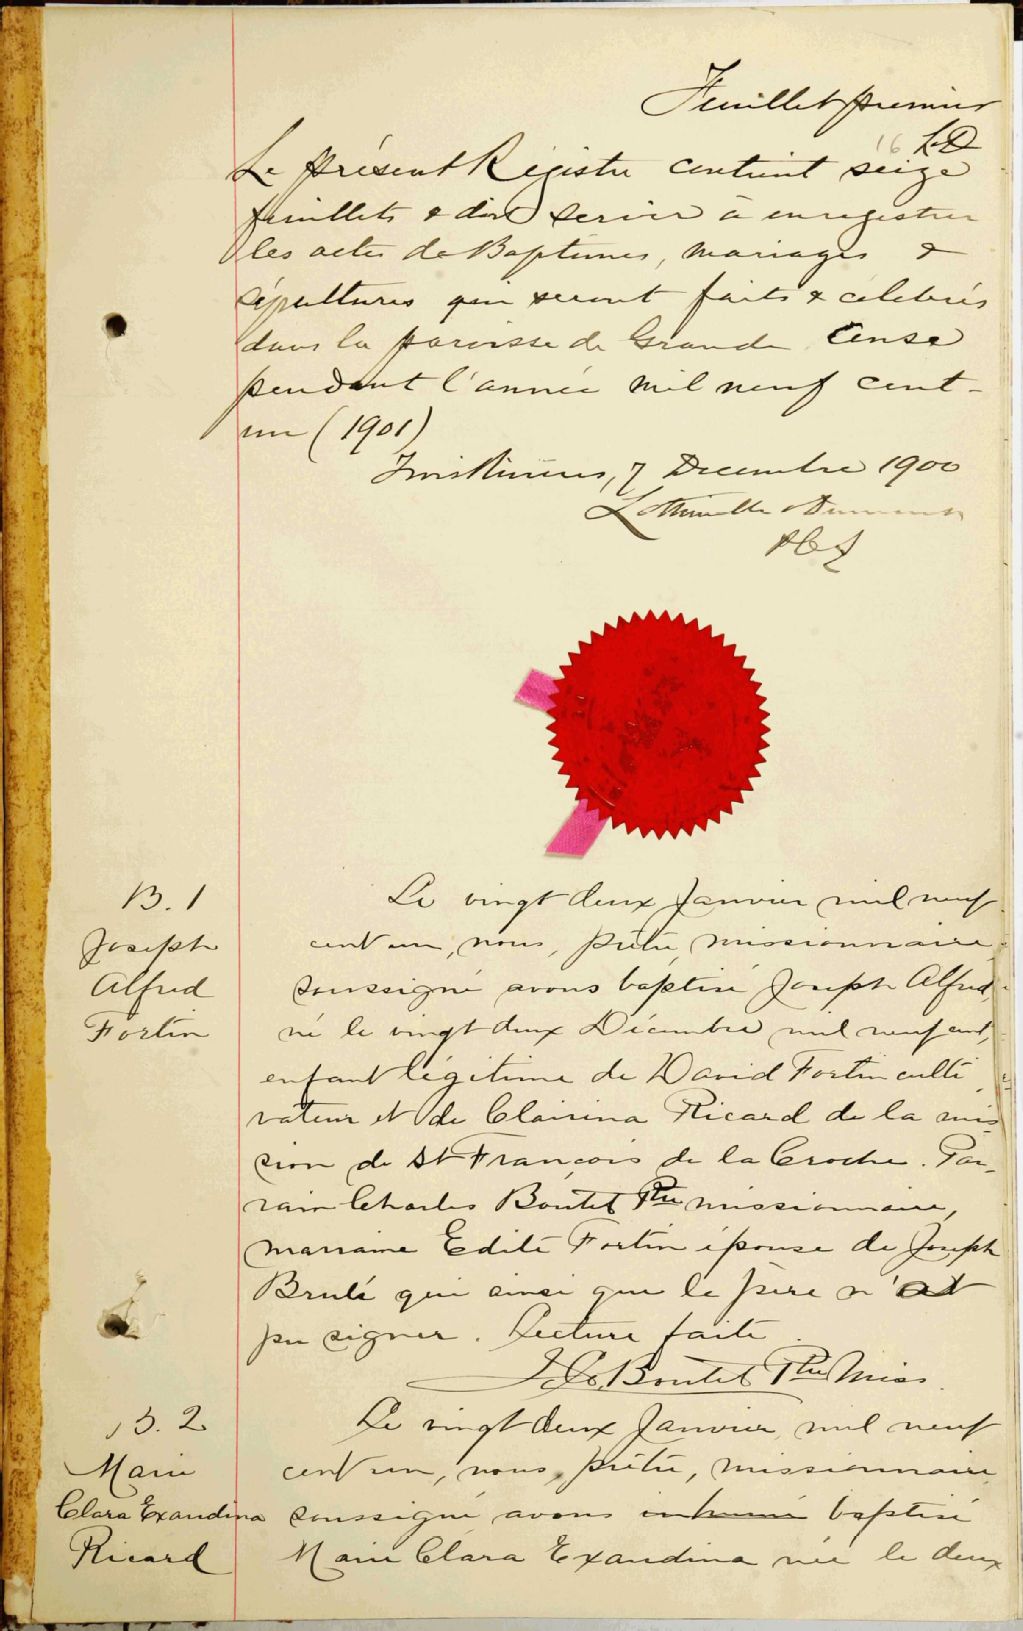 Feuillet premier
16 L&D
Le présent Régistre contient seize
feuillets & doit servir à enregistrer
les actes de Baptêmes, mariages &
sépultures qui seront faits & célébrés
dans la paroisse de Grande Anse
pendant l'année mil neuf cent
un (1901)
Trois Rivières, 7 Decembre 1900
PCS
B. 1
Joseph
Alfred
Fortin
Le vingt deux Janvier mil neuf
cent un, nous, prêtre, missionnaire
soussigné avons baptisé Joseph Alfred,
né le vingt deux Décembre mil neuf cent,
enfant légitime de David Fortin culti
vateur et de Clairina Ricard de la mis
sion de St François de la Croche. Par-
rain Charles Boutet Ptre missionnaire,
marraine Edite Fortin épouse de Joseph
Brulé qui ainsi que le père n'ont
pu signer. Lecture faite.
Boutet Ptre Miss.
B. 2
Marie
Clara Exandina
Ricard
Le vingt deux Janvier mil neuf
cent un, nous, prêtre, missionnaire
soussigné avons inhumé baptisé
Marie Clara Exandina née le deux